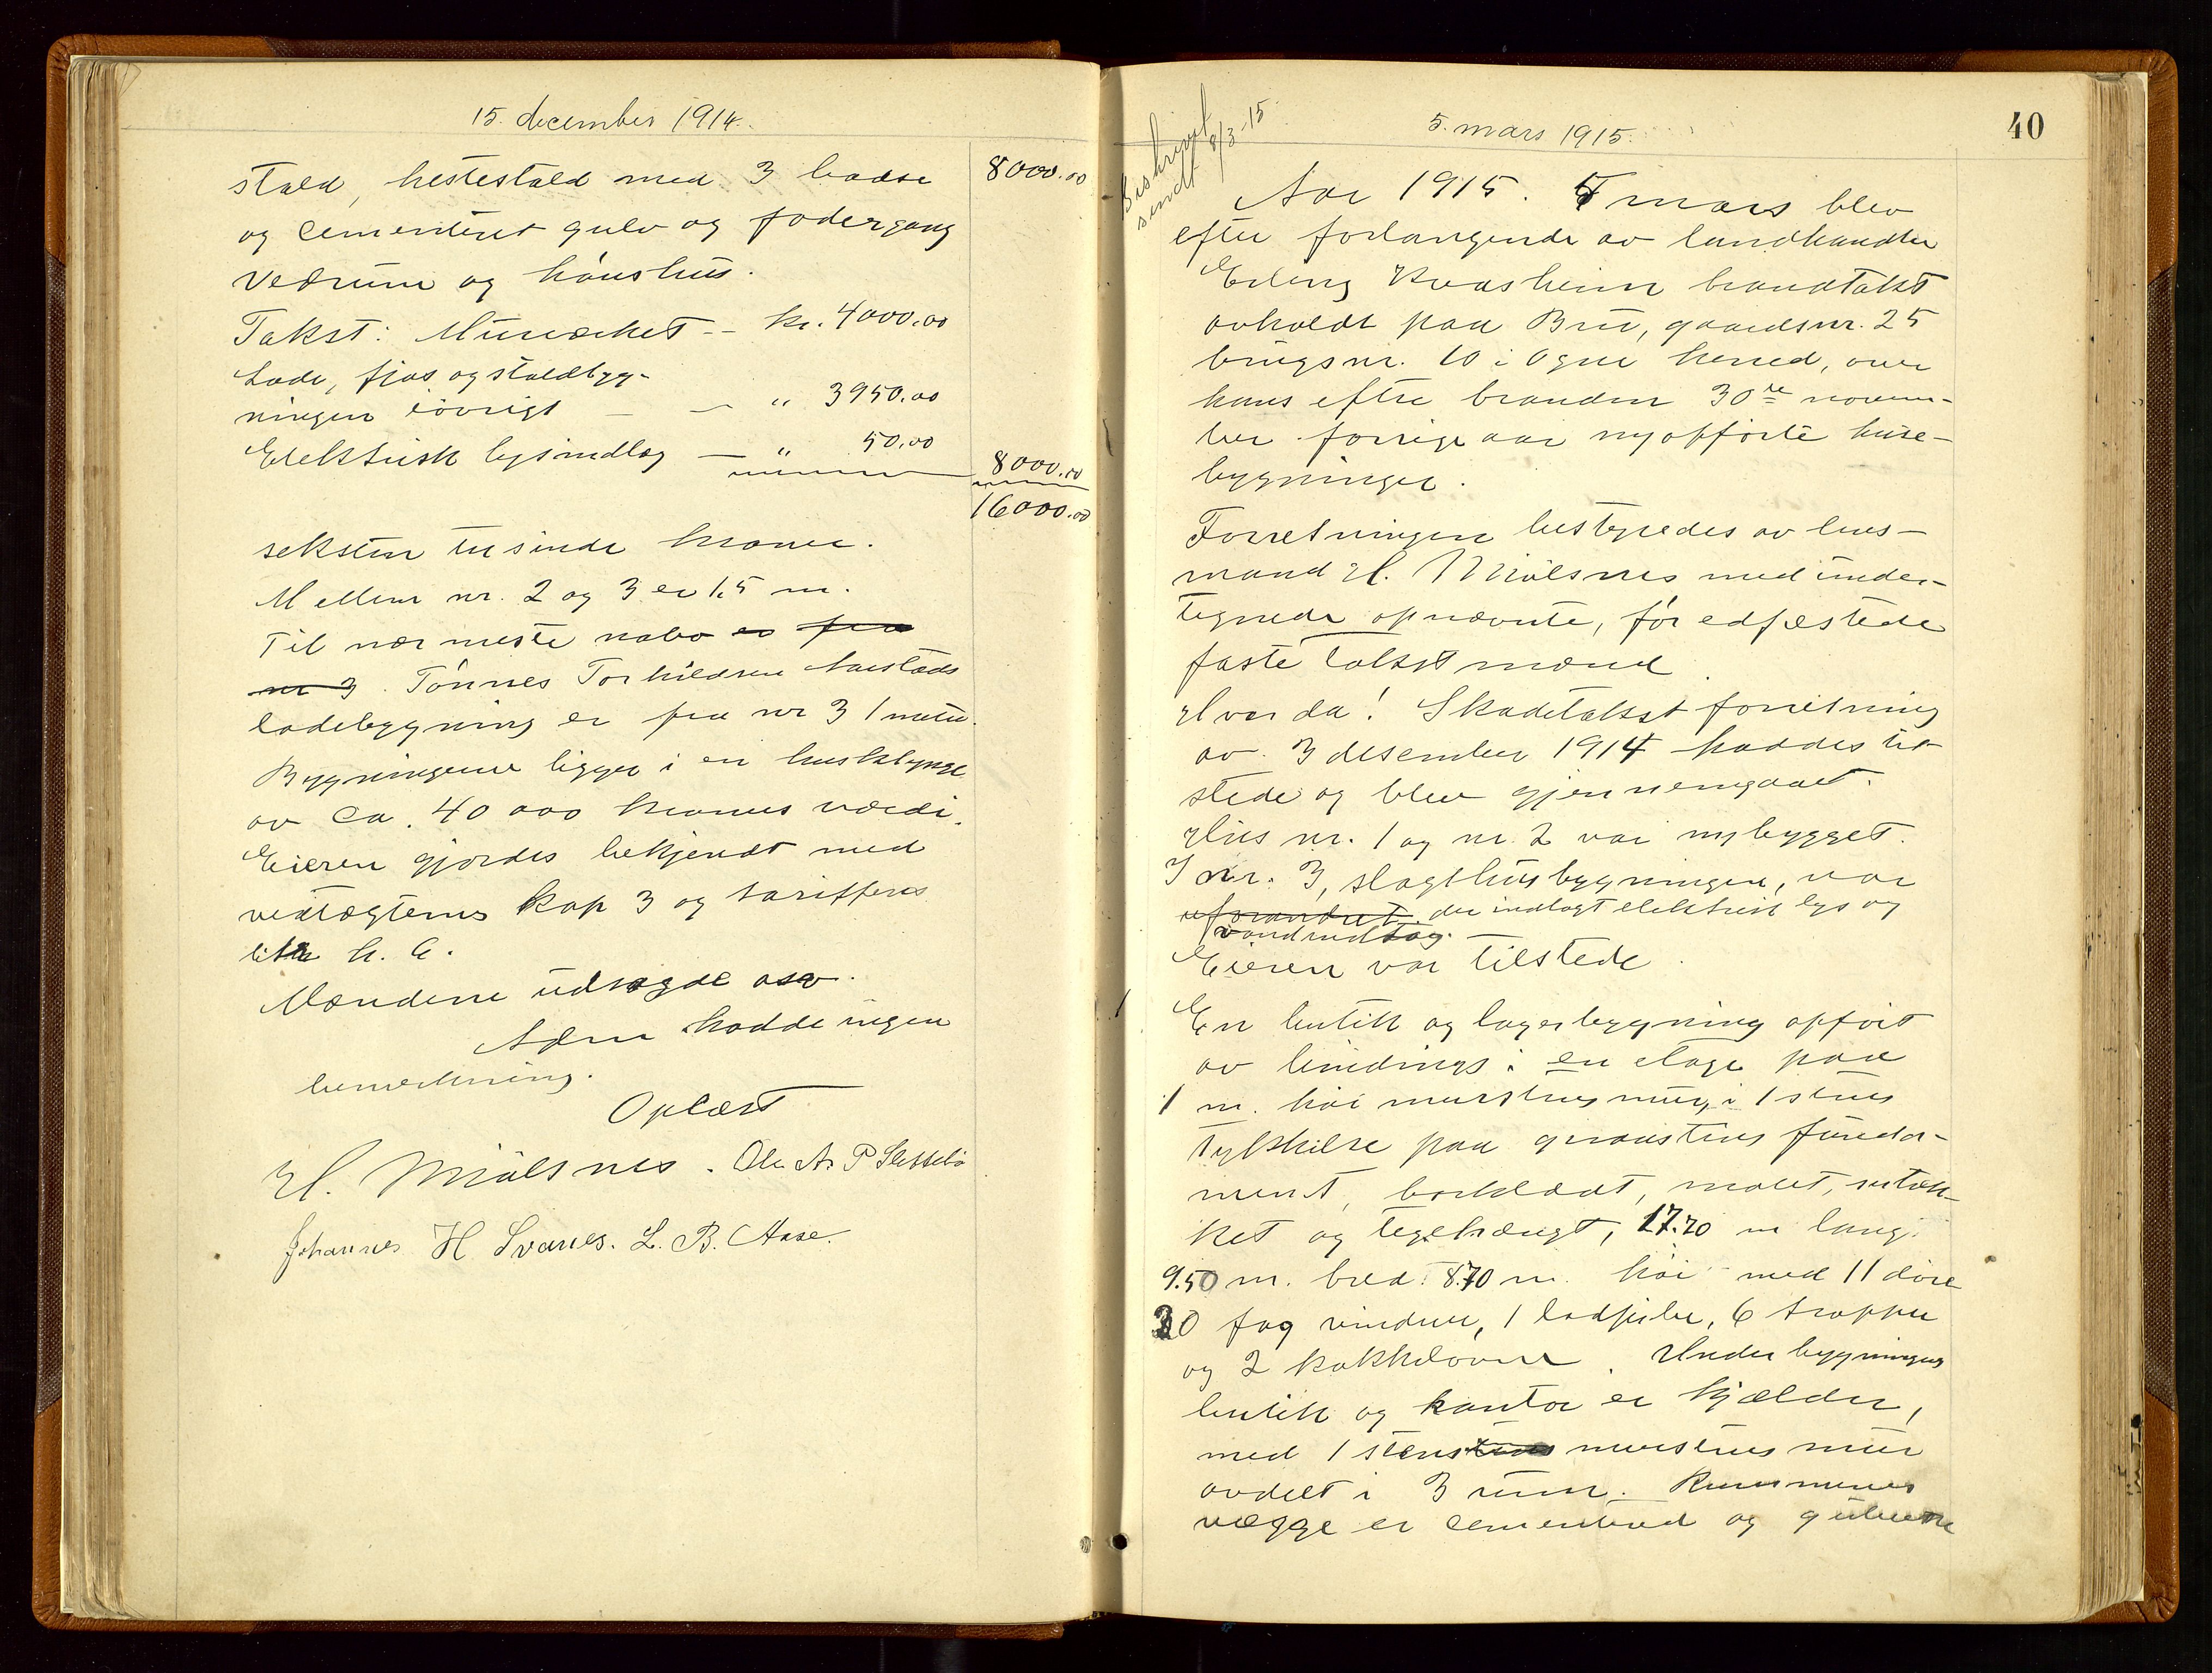 15. december 1914.
stald, hestestald med 3 baase 8000.00
og cementeret gulv og fodergang
vedrum og hønshus.
Takst: Murverket -- kr. 4000.00
Lade, fjøs og staldbyg-
ningen iøvrigt — — " 3950.00
Elektrisk lysindlæg — " 50.00
8000.00
16000.00
seksten tusinde kroner.
Mellem nr. 2 og 3 er 1,5 m.
Til nærmeste nabo er fra
nr 3. Tønnes Torkildsen Aarstads
ladebygning er fra nr 3 1 meter.
Bygningerne ligger i en husklynge
av ca. 40 000 kroners værdi.
Eieren gjordes bekjendt med
vedtægternes kap 3 og tariffens
litr h. C.
Mændene utsagde osv.
hadde ingen
bemerkning.
Oplæst
H. Mjølsnes. Ole As P Slettebø
Johannes H. Svanes. L. B. Aase.
40
Beskrivel
sendt 8/3-15
5. mars 1915.
Aar 1915. 5 mars blev
efter forlangende av landhandler
Erling Kvasheim brandtakst
avholdt paa Bru, gaardsnr. 25
brugsnr. 10 i Ogne herred, over
hans efter branden 30te novem-
ber forrige aar nyopførte huse-
bygninger.
Forretningen bestyredes av lens-
mand H. Mjølsnes med under-
tegnede opnævnte, før edfæstede
faste takstmænd.
Hvorda! Skadetakstforretning
av 3 desember 1914 haddes til
stede og blev gjennemgaaet.
Hus nr. 1 og nr. 2 var nybygget.
I nr. 3, slagthusbygningen, var
uforandret der indlagt elektrisk lys og
vandindlæg.
Eieren var tilstede.
1
En butik og lagerbygning opført
av bindings i en etage paa
1 m. høi murstensmur, i 1 stens
tykkelse paa graastens funda-
ment, bordklædt, malet,
ket og teglhængt, 17.70 m lang
9.50 m. bred 8.70 m. høi med 11 døre
30 fag vinduer, 1 , 6 trapper
og 2 kakkelovne. Under bygningens
butik og kontor er kjælder,
med 1 stens murstens mur
avdelt i 3 rum. Rummenes
vægge er cementerd og gulvene